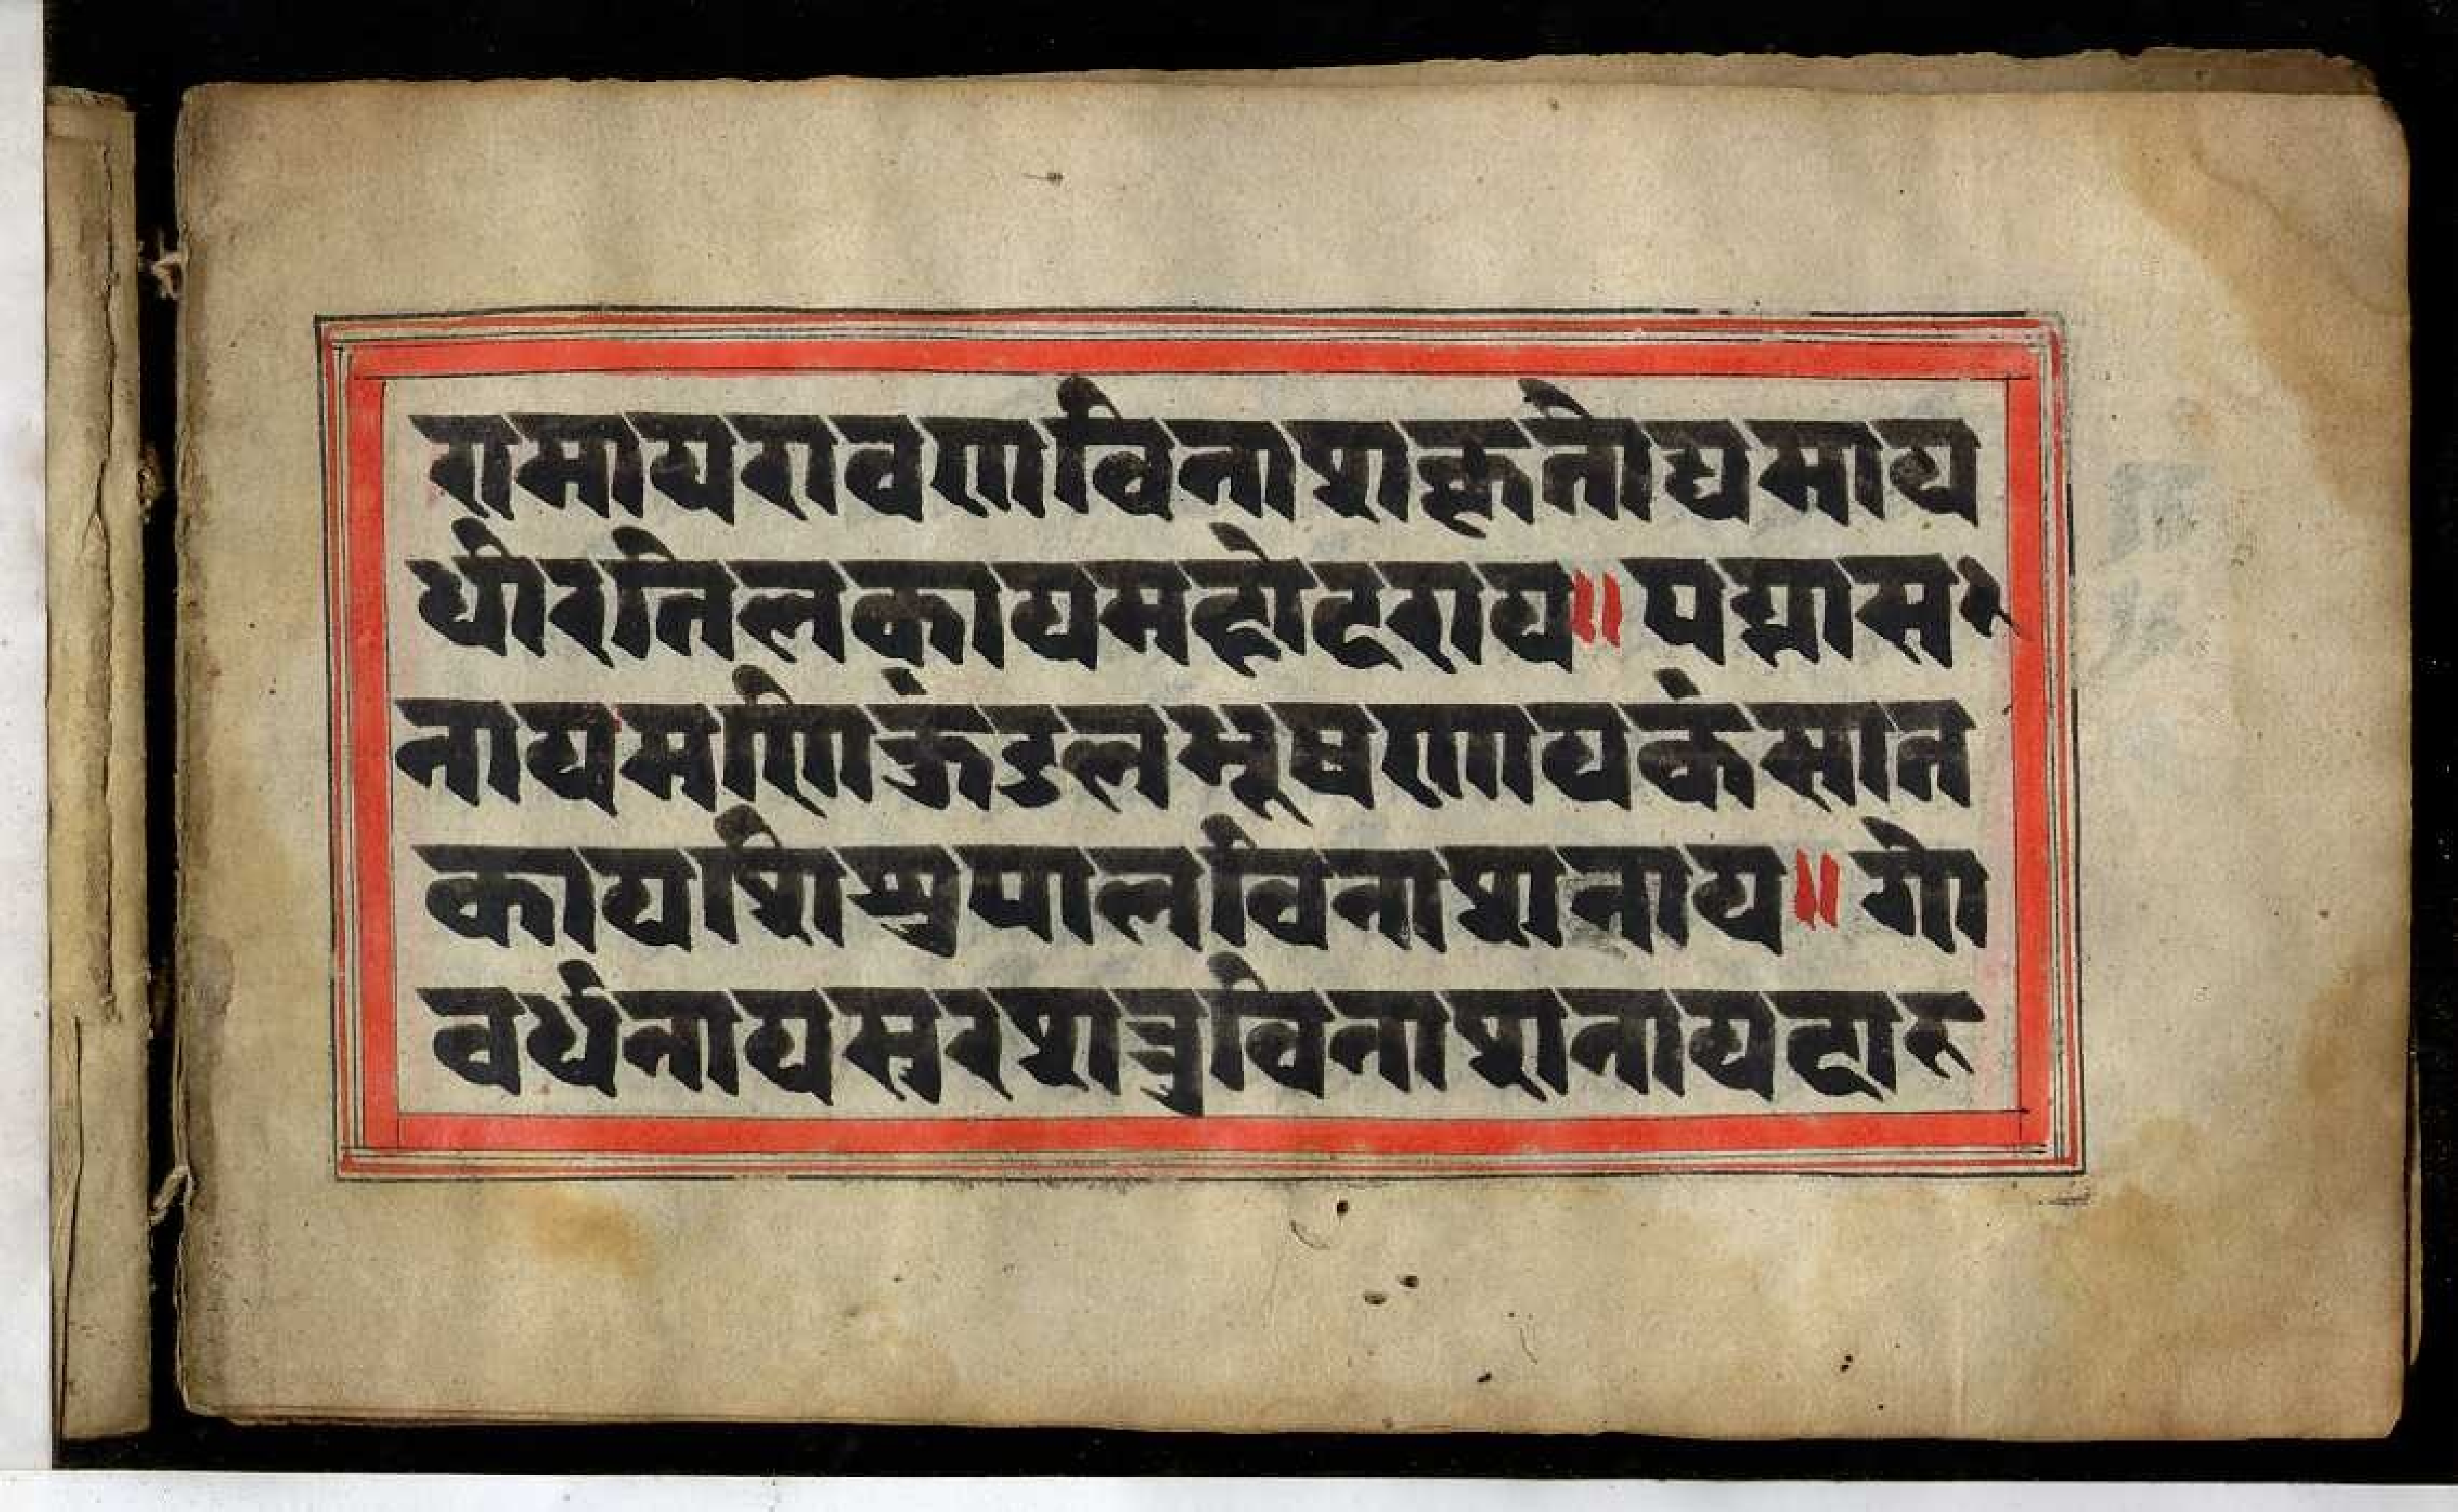 रामायरावणविनाशकृतोद्यमाय
धीरतिलकायमहोदराय॥पद्मास
नायमणिकुंडलभूषणायकंसांत
कायशिशुपालविनाशनाय॥गो
वर्धनायसरशत्रुविनाशनायदारु